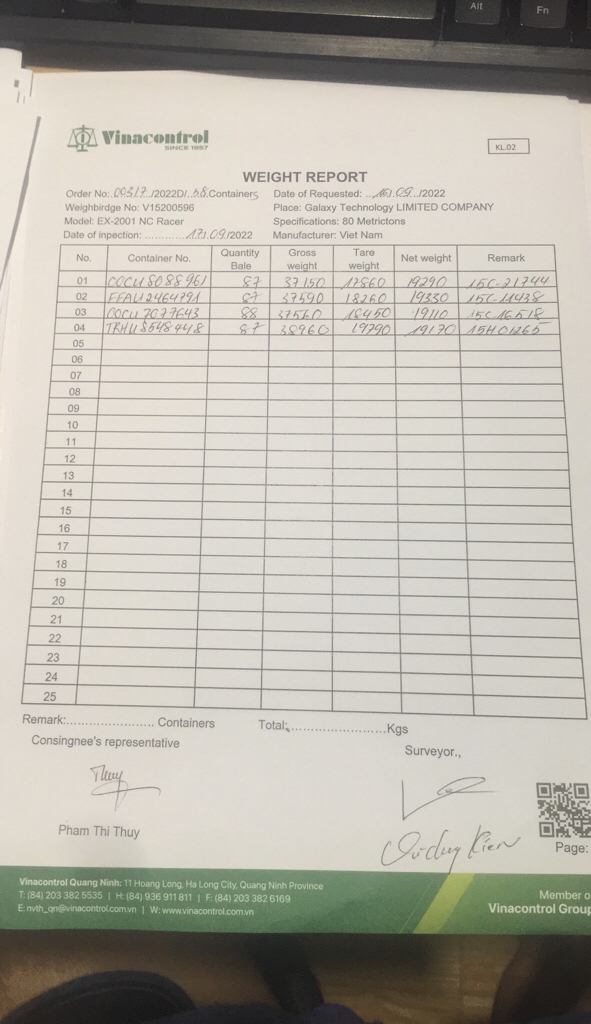 Alt
Fn
Vinacontrol
SINCE 1957
KL.02
WEIGHT REPORT
Order No: 00517/2022D/..68.Containers Date of Requested: ...15/.09../2022
Weighbirdge No: V15200596 Place: Galaxy Technology LIMITED COMPANY
Model: EX-2001 NC Racer Specifications: 80 Metrictons
Date of inpection: ............17/.09/2022 Manufacturer: Viet Nam
No. Container No. Quantity Bale Gross weight Tare weight Net weight Remark
01 COCU8088961 87 37150 17860 19290 15C-21744
02 FFAU2464791 87 37590 18260 19330 15C-11438
03 OOCU7077643 88 37560 18450 19110 15C16518
04 TRHU8548448 87 38960 19790 19170 15H01265
05
06
07
08
09
10
11
12
13
14
15
16
17
18
19
20
21
22
23
24
25
Remark:........................ Containers Total:..........................Kgs
Consingnee's representative
Surveyor.,
Thuy
Pham Thi Thuy
Kien
Page:
Vinacontrol Quang Ninh: 11 Hoang Long, Ha Long City, Quang Ninh Province
T: (84) 203 382 5535 | H: (84) 936 911 811 | F: (84) 203 382 6169
E: nvth_qn@vinacontrol.com.vn | W: www.vinacontrol.com.vn
Member o
Vinacontrol Group